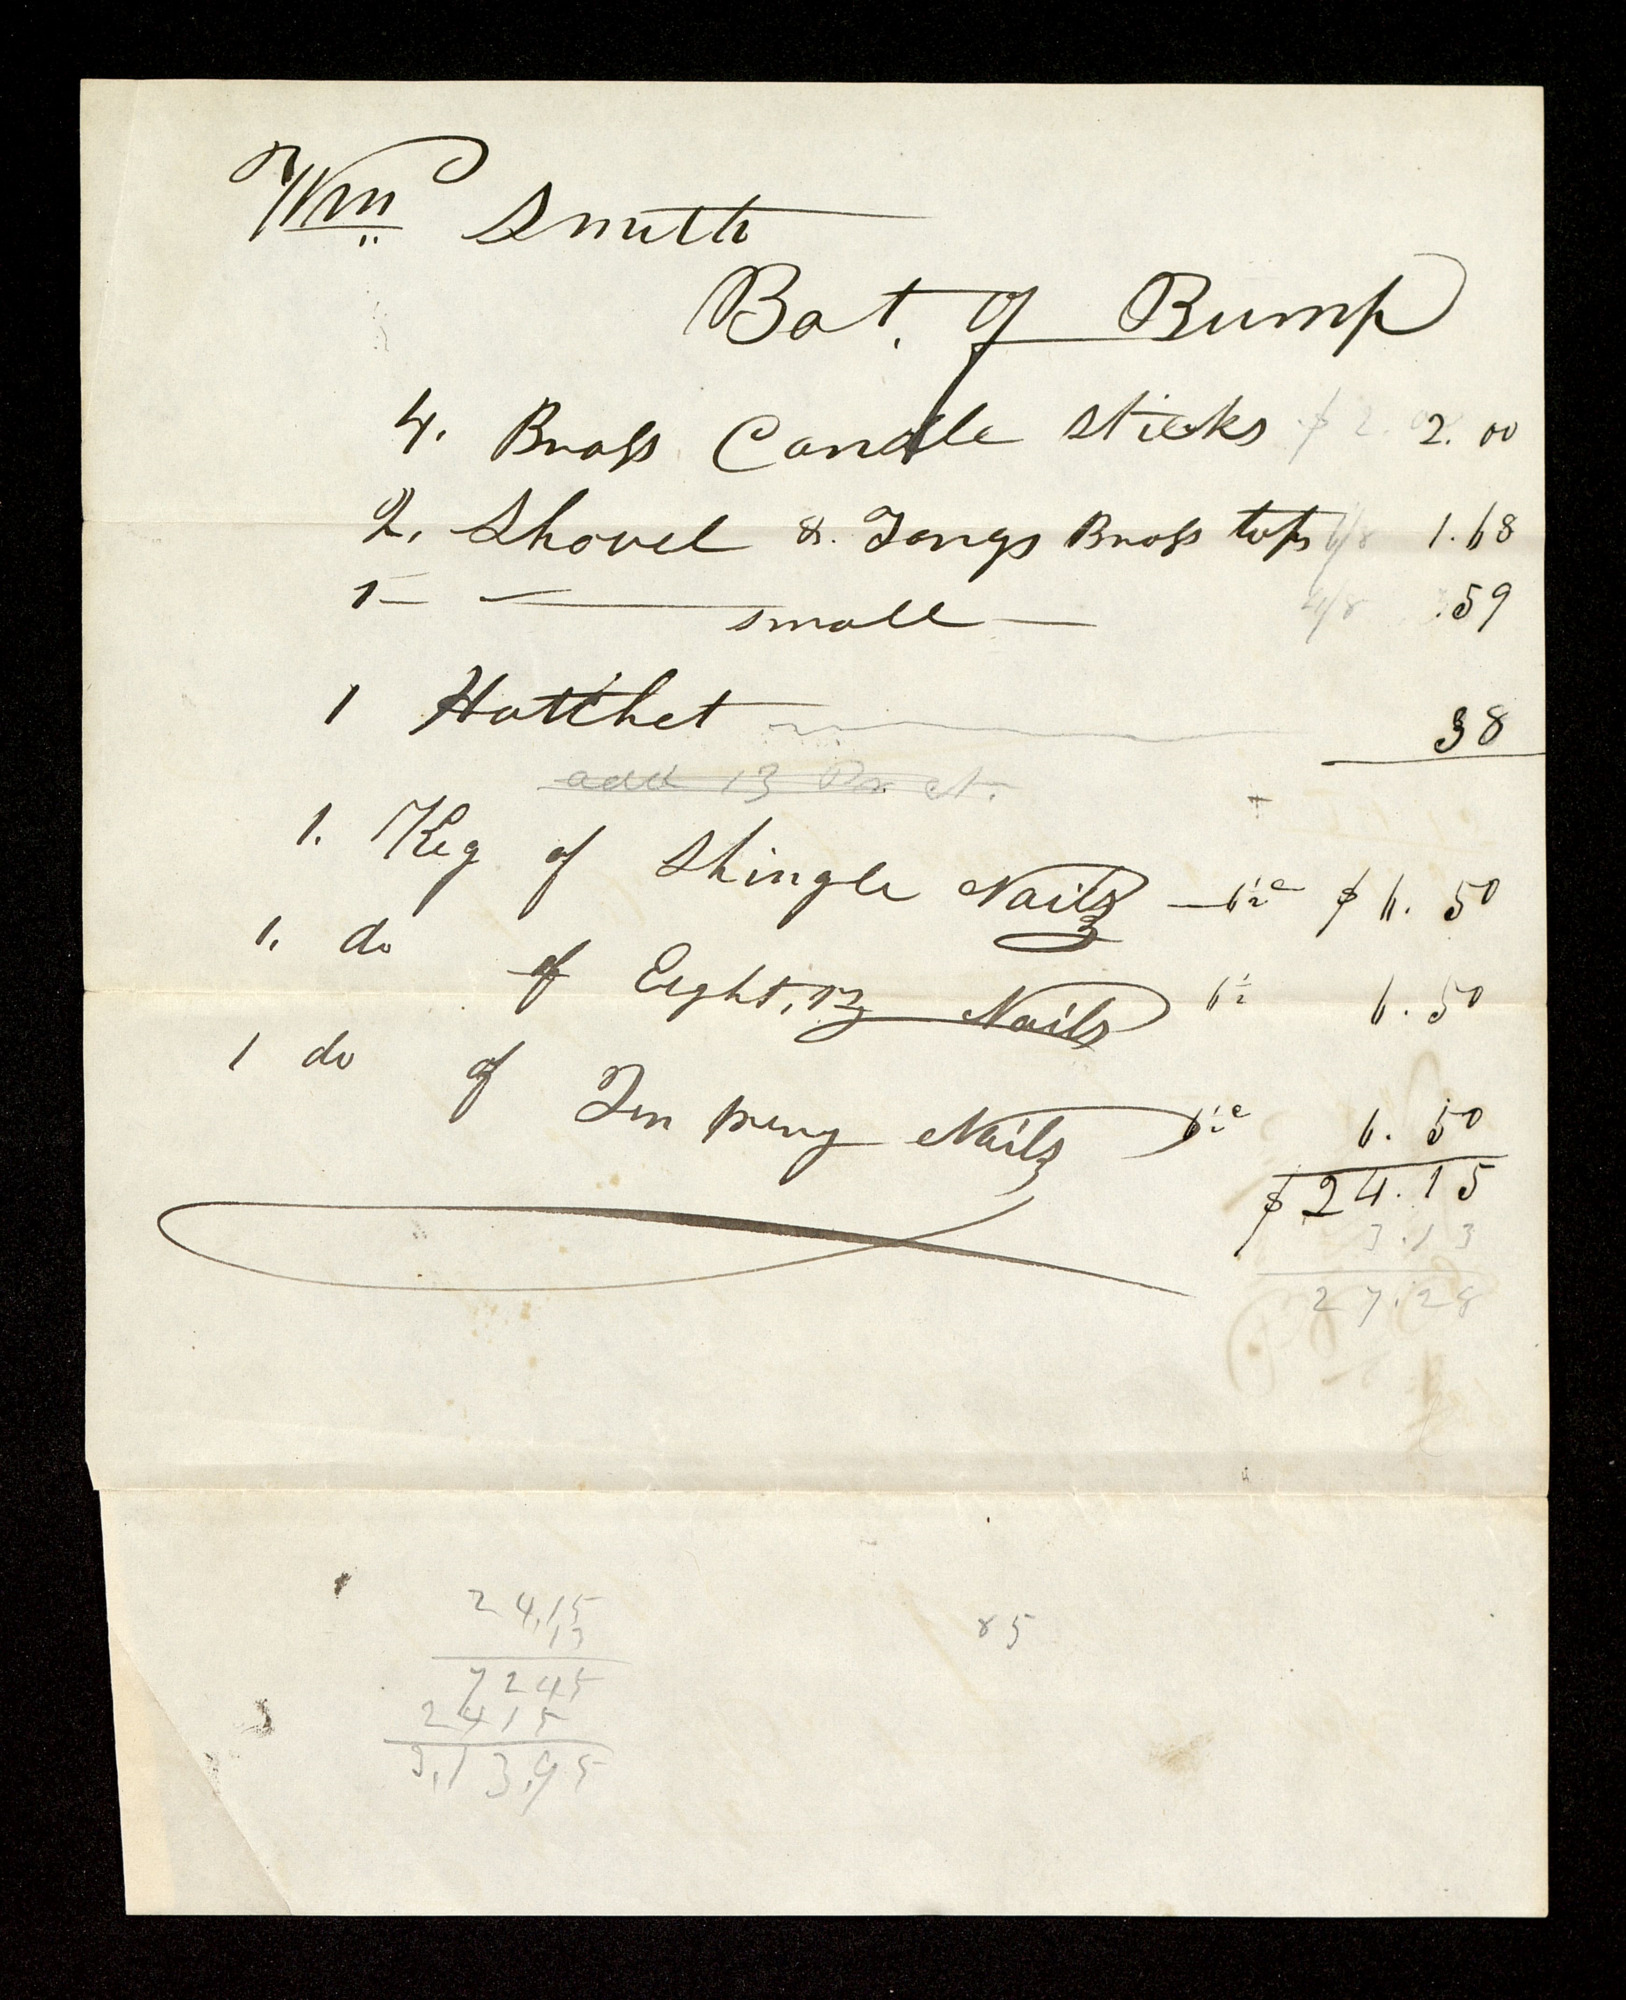 Wm Smith
Bot. of Bump
4. Brass Candle sticks $2.00 2.00
2. Shovel & Tongs Brass tops 6/8 1.68
1 — small — 4/8 .59
1 Hatchet 38
add 13 Pr ct.
1. Keg of Shingle Nails — 6½c $6.50
1. do of Eight, py Nails 6½ 6.50
1 do of Ten peny Nails 6½c 6.50
$24.15
3.13
27.28
24.15
13
7245
2415
3,13,95
85